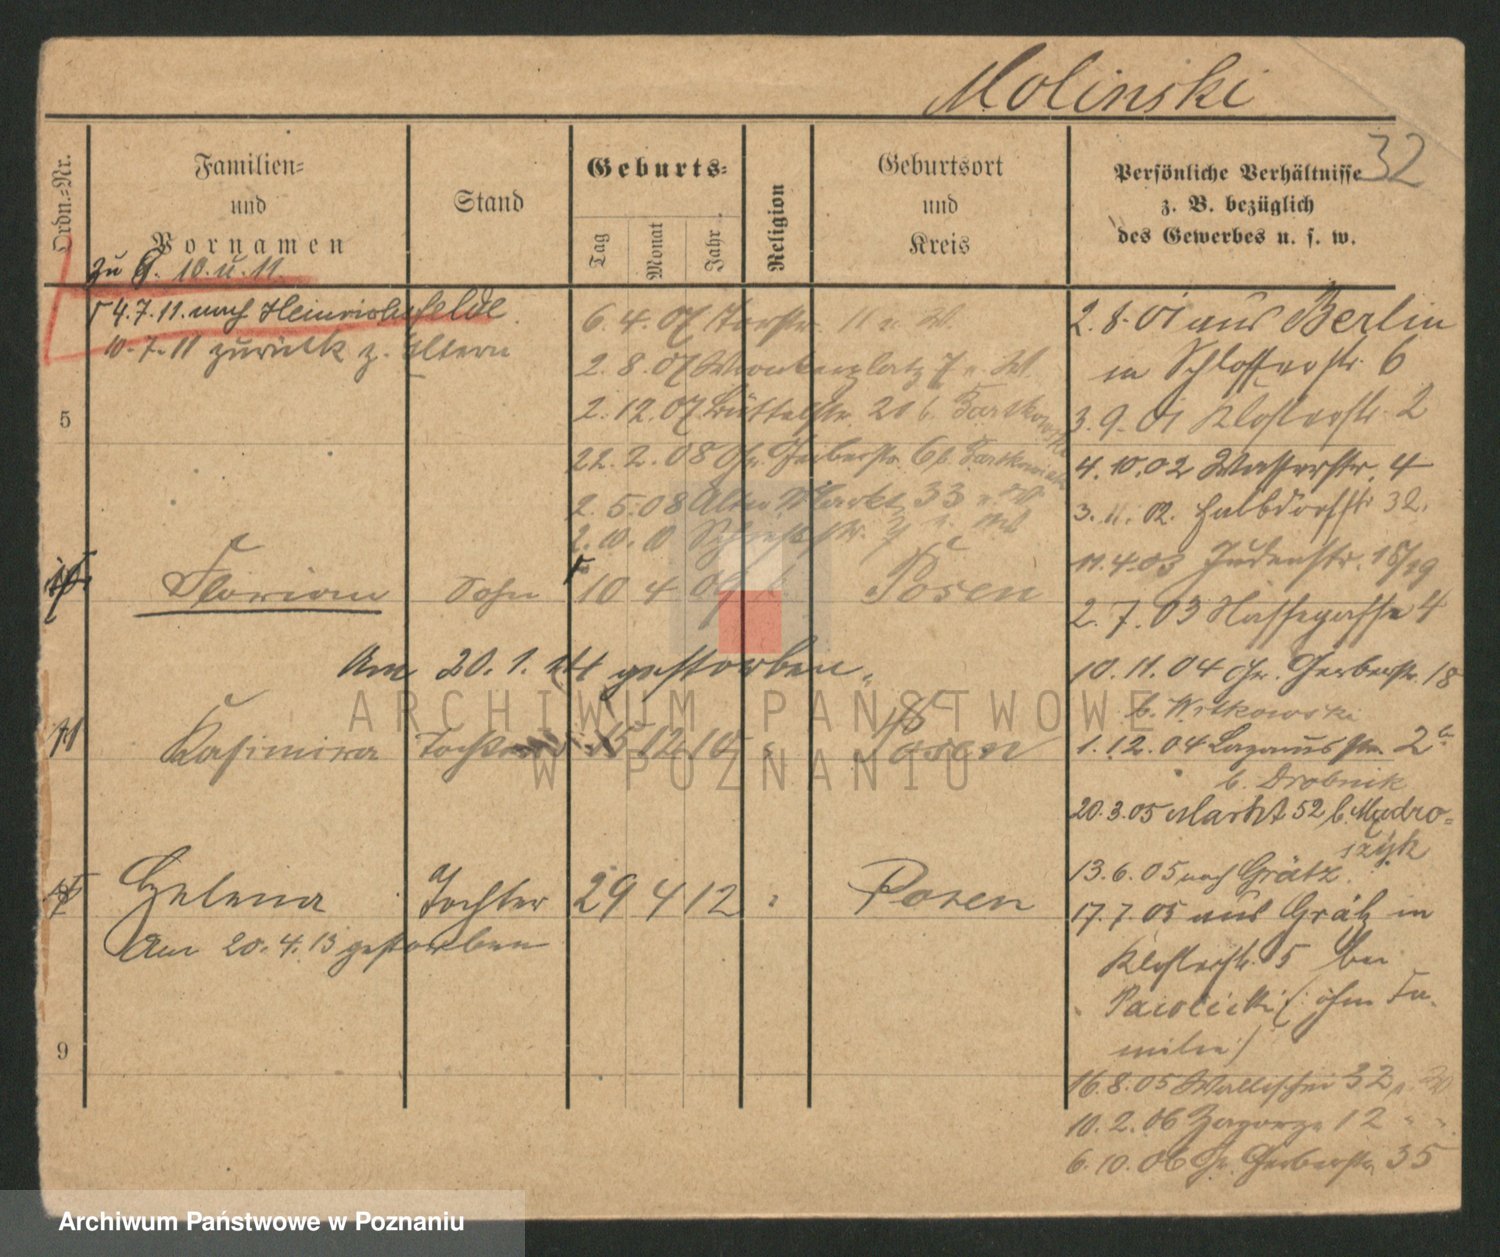 Molinski
32
Ordn.-Nr.
Familien-
und
Vornamen
Stand
Geburts-
Tag
Monat
Jahr
Religion
Geburtsort
und
Kreis
Persönliche Verhältnisse
z. B. bezüglich
des Gewerbes u. s. w.
zu 10. u. 11.
4.7.11. nach Heinrichsfelde
10.7.11 zurück z. Eltern
5
6.4.07 11 u. W.
2.8.07 Wronkerplatz 7 u. W.
2.12.07 Büttelstr. 20 b.
22.2.08 Gr. Gerberstr. 6 b.
2.5.08 Alter Markt 33
2.10.10
Florian Sohn 10 4 Posen
Am 20.1. gestorben.
11 Kasimira Tochter 15 12 10 Posen
Helena Tochter 29 4 12 Posen
Am 20.4.13 gestorben
9
2.8.01 aus Berlin
in Schlosserstr. 6
3.9.01 Klosterstr. 2
4.10.02 Wasserstr. 4
3.11.02. Halbdorfstr 32.
11.4.03 Judenstr. 15/19
2.7.03 Nassegasse 4
10.11.04 Gr. Gerberstr. 18
b. Witkowski
1.12.04 2
b. Drobnik
20.3.05 Markt 52 b. Mądro-
szyk
13.6.05 nach Grätz.
17.7.05 aus Grätz in
Klosterstr. 5 bei
(: ohne Fa-
milie :)
16.8.05 Wallischei 32
10.2.06 Zagorze 12
6.10.06 Gr. Gerberstr. 35
ARCHIWUM PAŃSTWOWE
W POZNANIU
Archiwum Państwowe w Poznaniu